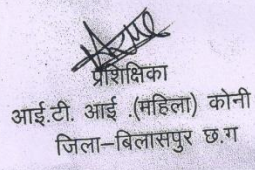 प्रशिक्षिका
आई.टी. आई .(महिला) कोनी
जिला–बिलासपुर छ.ग